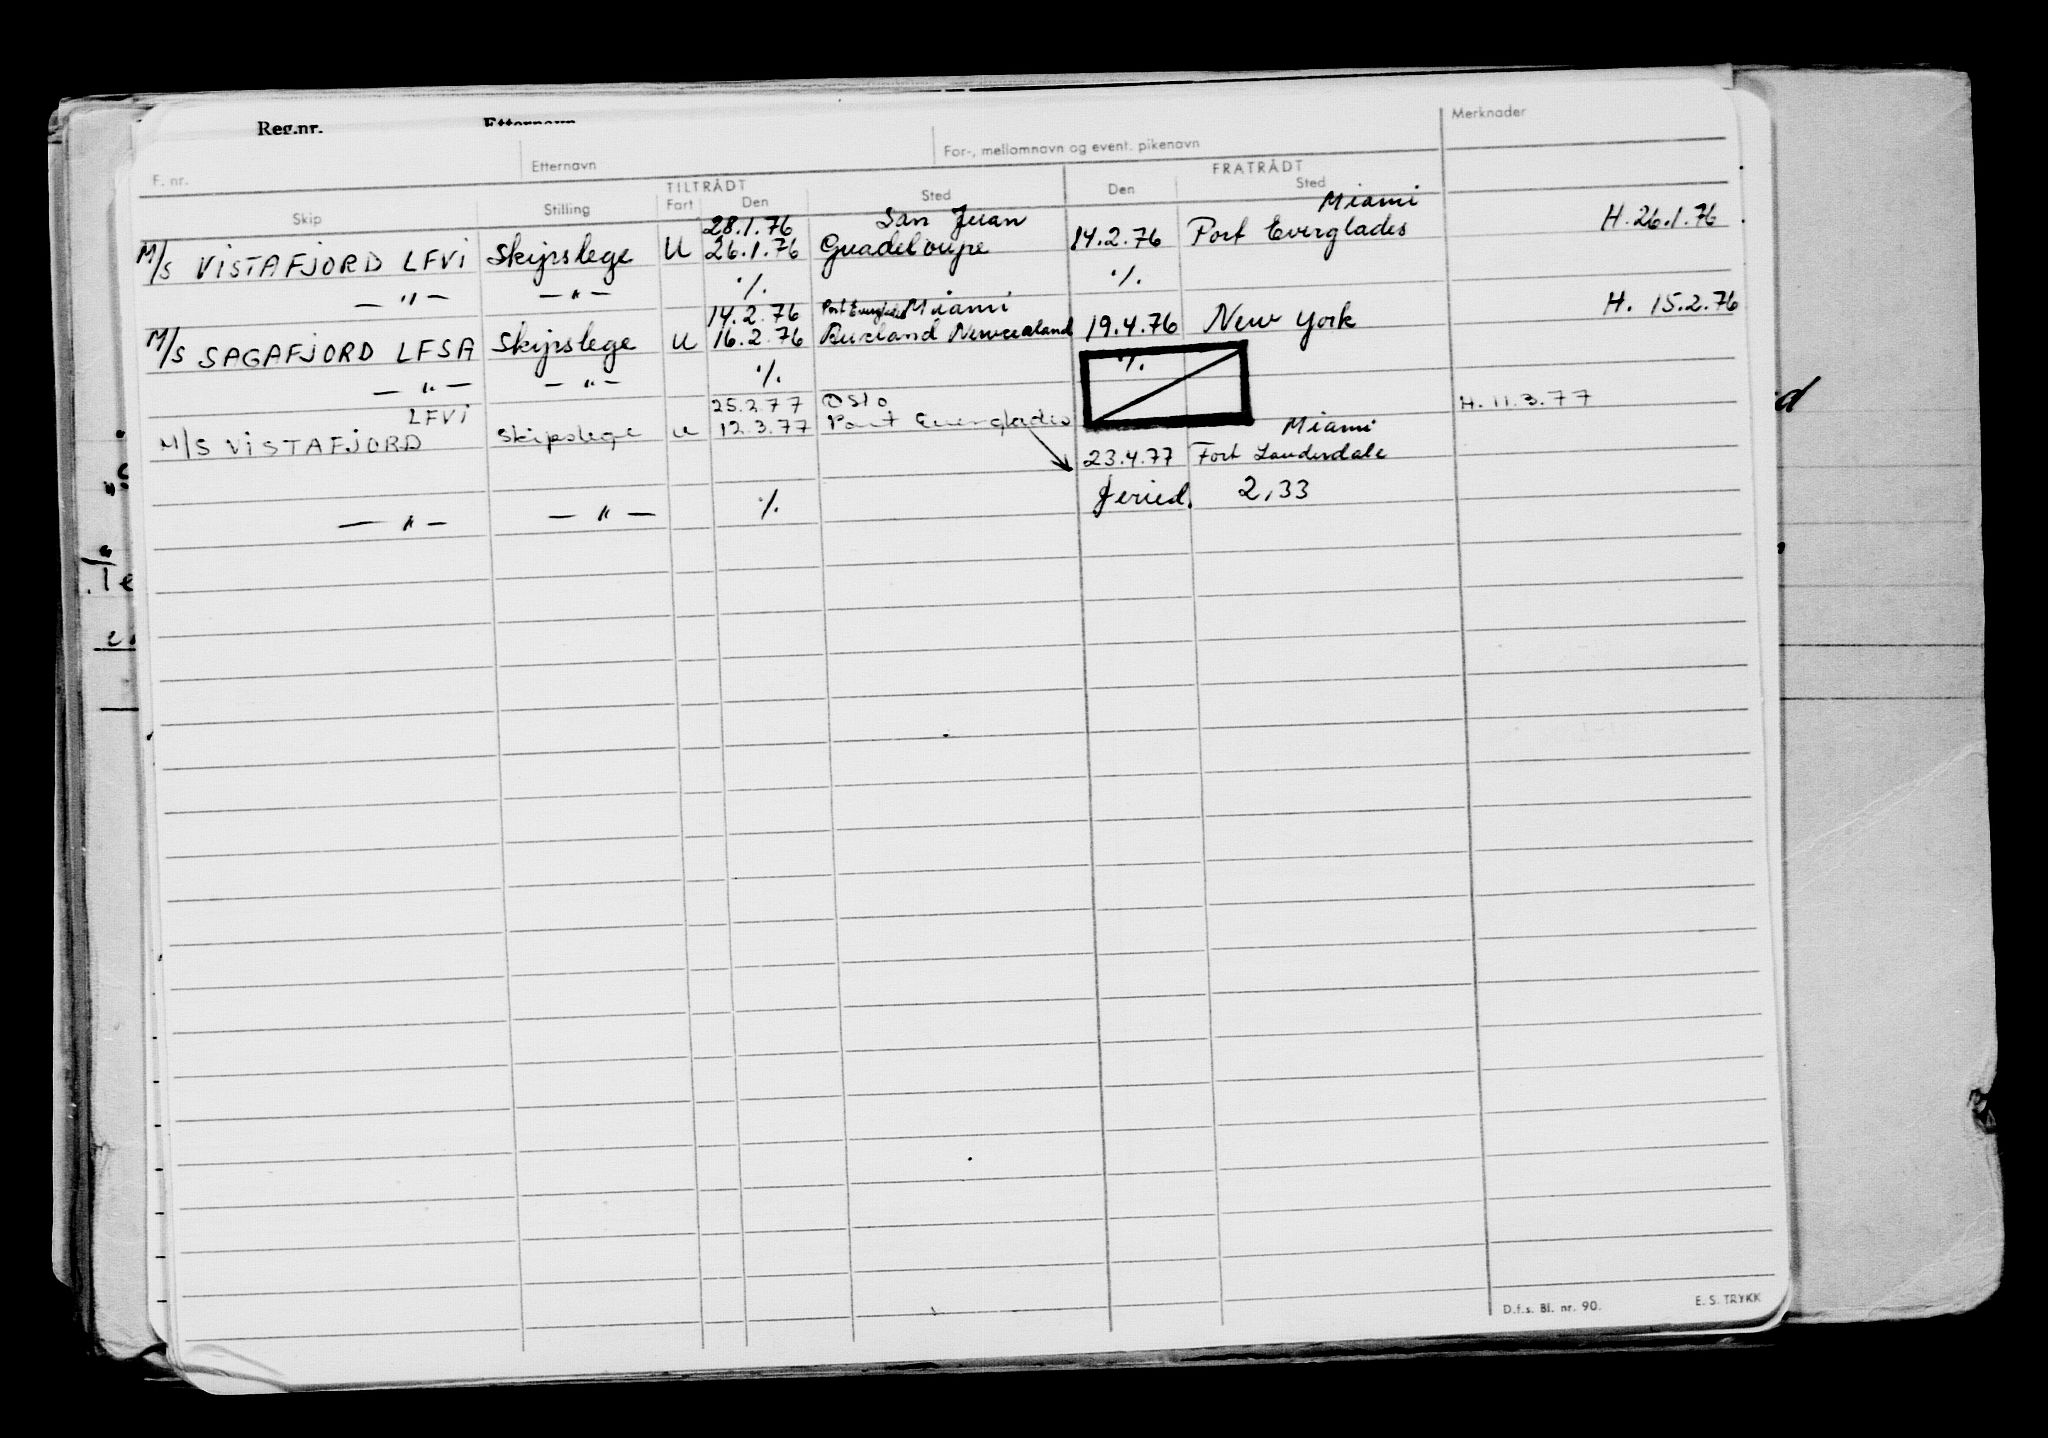 Reg.nr. Etternavn
Merknader
F. nr. Etternavn For-, mellomnavn og event. pikenavn
TILTRÅDT FRATRÅDT
Skip Stilling Fart Den Sted Den Sted
28.1.76 San Juan Miami
M/S VISTAFJORD LFVI Skipslege U 26.1.76 Guadeloupe 14.2.76 Port Everglades H. 26.1.76
— " — — " — ·/. ·/.
14.2.76 Port Everglades Miami
M/S SAGAFJORD LFSA Skipslege U 16.2.76 Newzealand 19.4.76 New York H. 15.2.76
— " — — " — ·/. ·/.
LFVI 25.2.77 Oslo
M/S VISTAFJORD Skipslege U 12.3.77 Port Everglades H. 11.3.77
Miami
23.4.77 Fort Lauderdale
— " — — " — ·/. feried. 2,33
D.f.s. Bl. nr. 90. E. S. TRYKK